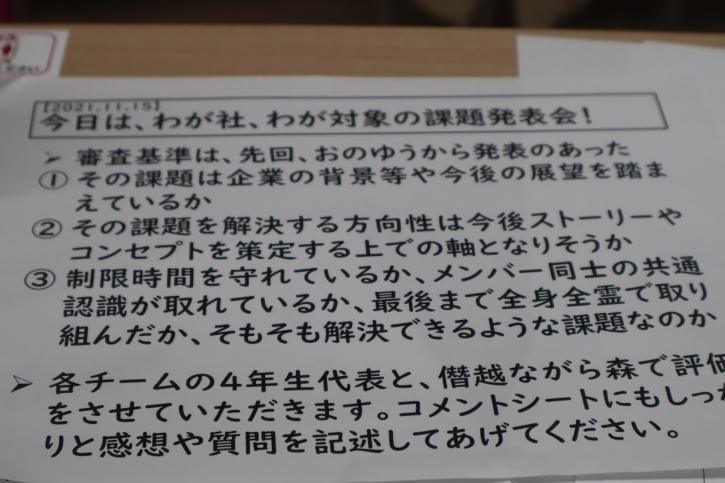 ださい
【2021.11.15】
今日は、わが社、わが対象の課題発表会！
➢ 審査基準は、先回、おのゆうから発表のあった
① その課題は企業の背景等や今後の展望を踏ま
えているか
② その課題を解決する方向性は今後ストーリーや
コンセプトを策定する上での軸となりそうか
③ 制限時間を守れているか、メンバー同士の共通
認識が取れているか、最後まで全身全霊で取り
組んだか、そもそも解決できるような課題なのか
➢ 各チームの4年生代表と、僭越ながら森で評価
をさせていただきます。コメントシートにもしっか
りと感想や質問を記述してあげてください。